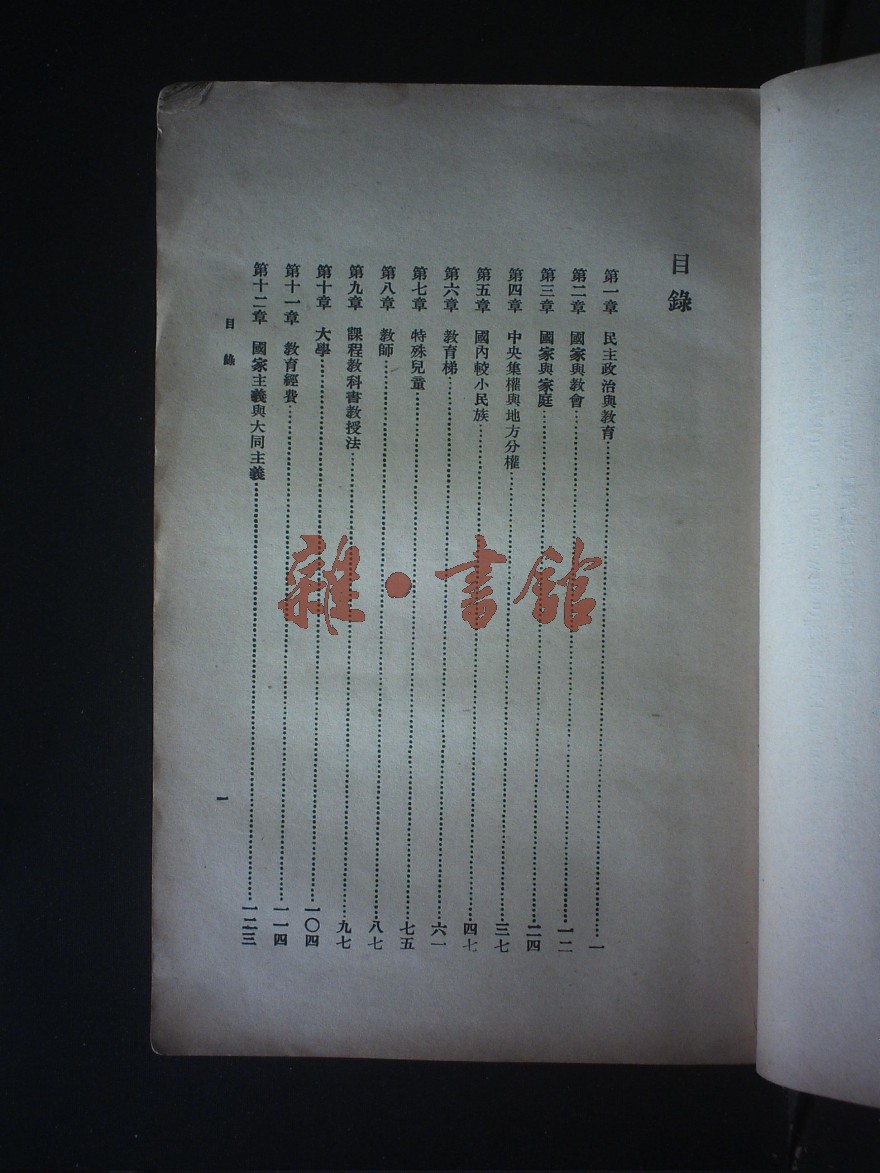 目錄
第一章 民主政治與教育……一
第二章 國家與教會……一二
第三章 國家與家庭……二四
第四章 中央集權與地方分權……三七
第五章 國內較小民族……四七
第六章 教育梯……六一
第七章 特殊兒童……七五
第八章 教師……八七
第九章 課程教科書教授法……九七
第十章 大學……一〇四
第十一章 教育經費……一一四
第十二章 國家主義與大同主義……一二三
目錄
一
雜·書館